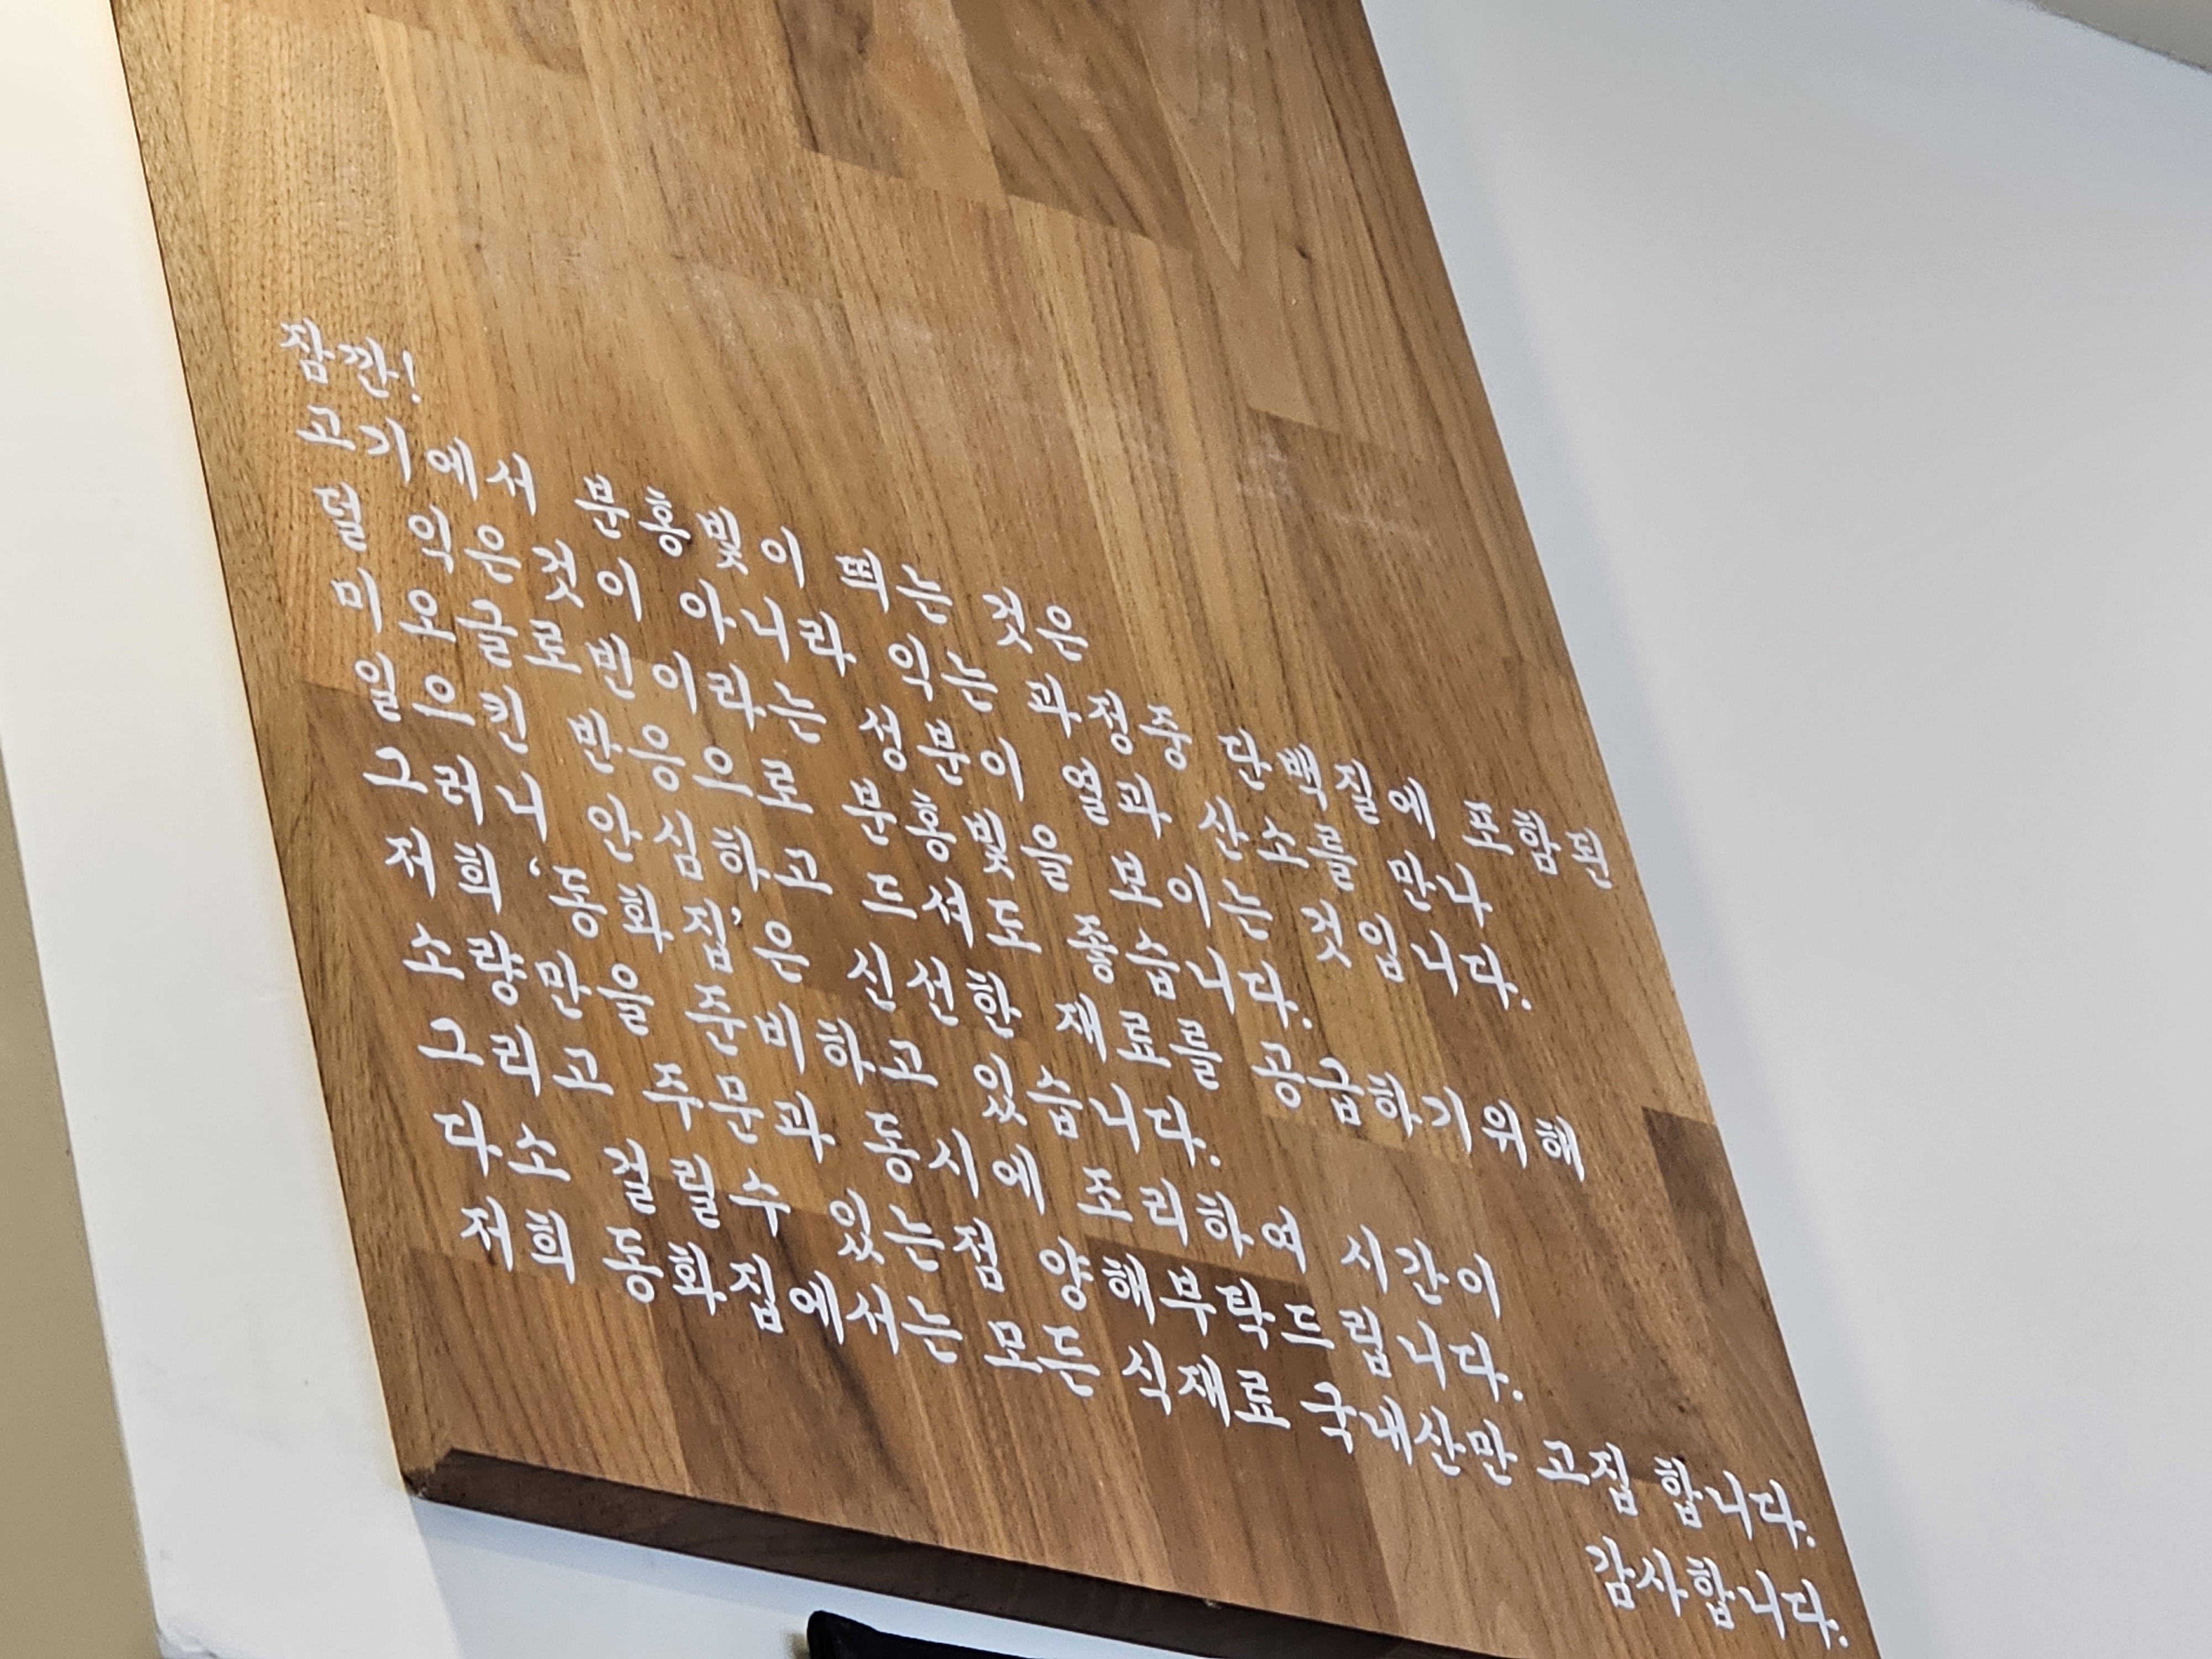 잠깐!
고기에서 분홍빛이 띄는 것은
덜 익은것이 아니라 익는 과정중 단백질에 포함된
미오글로빈이라는 성분이 열과 산소를 만나
일으킨 반응으로 분홍빛을 보이는 것입니다.
그러니 안심하고 드셔도 좋습니다.
저희 '동화집'은 신선한 재료를 공급하기위해
소량만을 준비하고 있습니다.
그리고 주문과 동시에 조리하여 시간이
다소 걸릴수 있는점 양해부탁드립니다.
저희 동화집에서는 모든 식재료 국내산만 고집 합니다.
감사합니다.